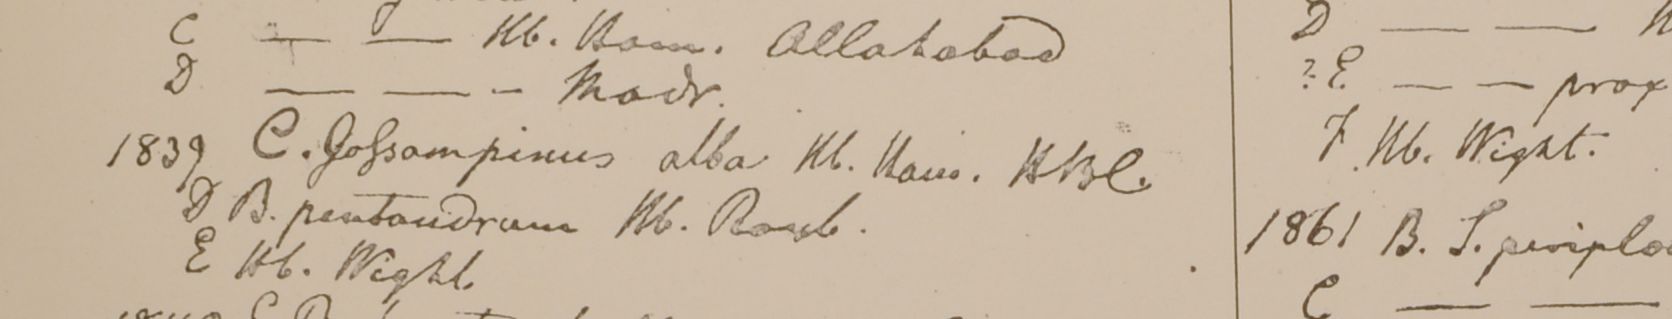 C — — Hb. Ham. Allahabad
D — — - Madr.
1839 C. Gossampinus alba Hb. Ham. HBC.
D B. pentandrum Hb. Roxb.
E Hb. Wight
D — —
?E — — prox
F Hb. Wight.
1861 B. S.
C — —